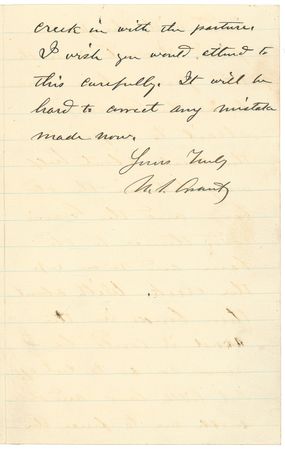 creek in with the pasture.
I wish you would attend to
this carefully. It will be
hard to correct any mistake
made now.
Yours Truly
U. S. Grant